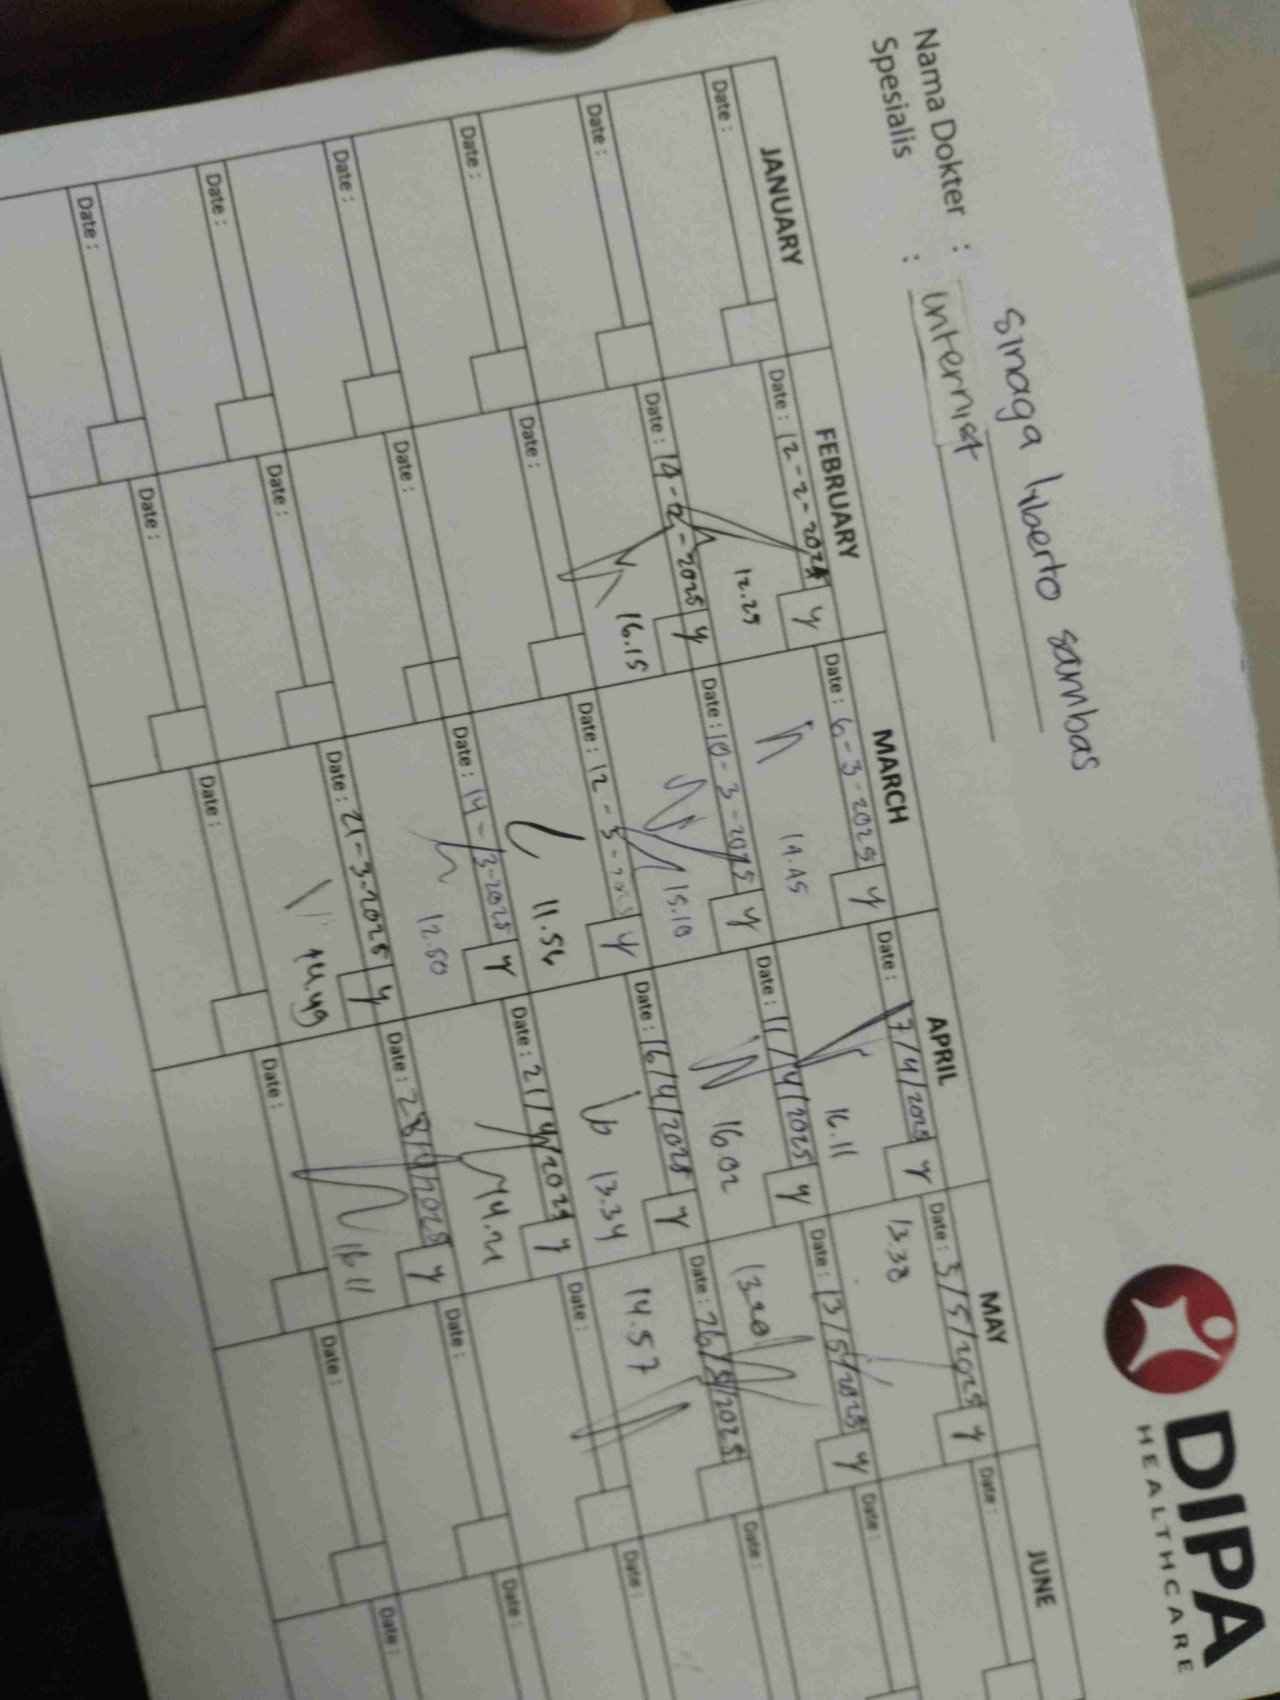 DIPA
HEALTHCARE
Nama Dokter : Sinaga liberto sambas
Spesialis : internist
JANUARY FEBRUARY MARCH APRIL MAY JUNE
Date : Date : 12-2-2025 y Date : 6-3-2025 y Date : 17/4/2025 y Date : 5/5/2025 y Date :
12.29 14.45 16.11 13.38
Date : Date : 14-2-2025 y Date : 10-3-2025 y Date : 11/4/2025 y Date : 13/5/2025 y Date :
16.15 15.10 16 02 13 20
Date : Date : Date : 12-3-2025 y Date : 16/4/2025 y Date : 26/5/2025 Date :
11.56 13.34 14.57
Date : Date : Date : 14-3-2025 y Date : 21/4/2025 y Date : Date :
12.50 14.21
Date : Date : Date : 21-3-2025 y Date : 28/4/2025 y Date : Date :
14.49 16 11
Date : Date : Date : Date : Date : Date :